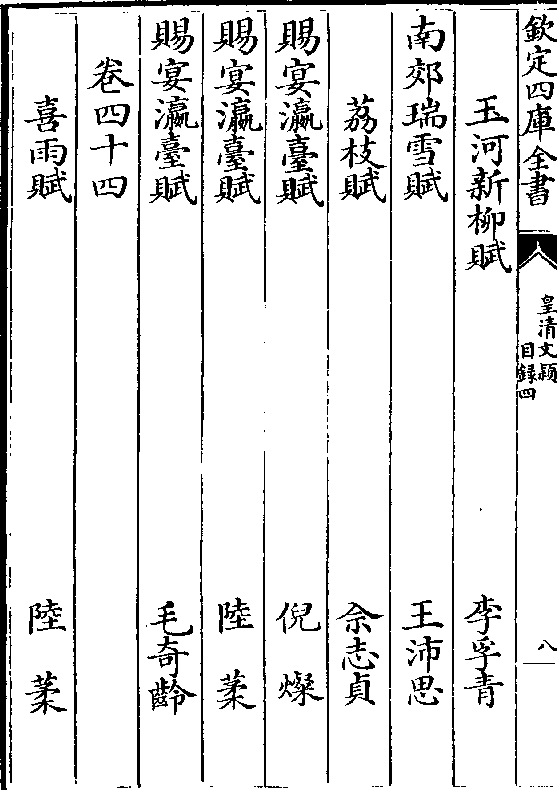 欽定四庫全書
皇清文穎
目録四
八
玉河新柳賦 李孚青
南郊瑞雪賦 王沛思
荔枝賦 佘志貞
賜宴瀛臺賦 倪燦
賜宴瀛臺賦 陸葇
賜宴瀛臺賦 毛奇齡
卷四十四
喜雨賦 陸葇